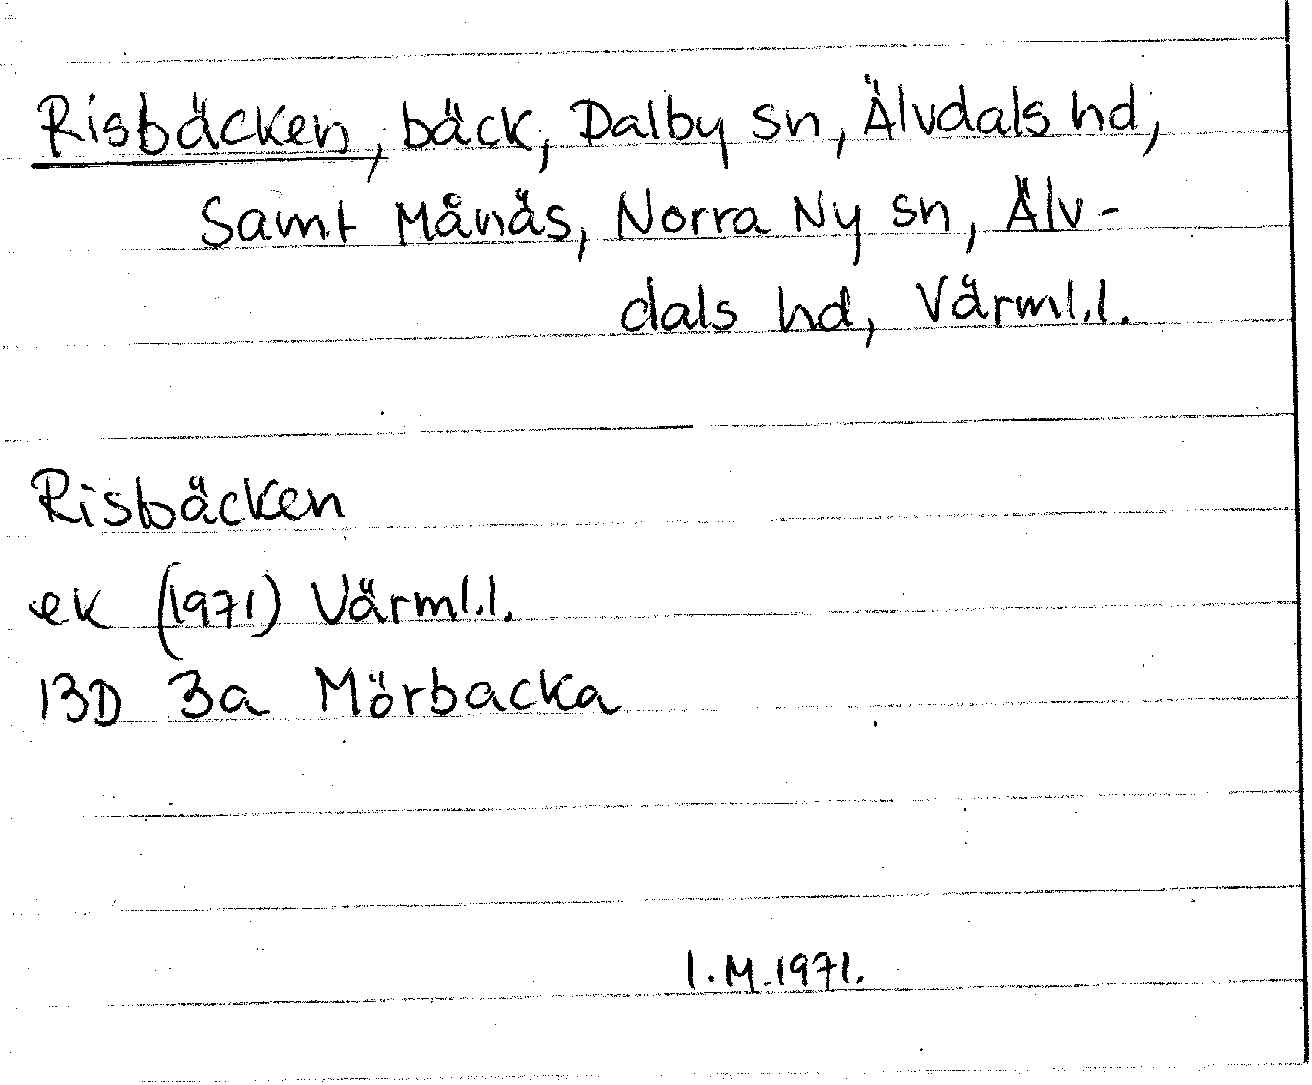 Risbäcken, bäck, Dalby sn, Älvdals hd,
Samt Månäs, Norra Ny sn, Älv-
dals hd, Värml.l.
Risbäcken
ek (1971) Värml.l.
13D 3a Mörbacka
I.M.1971.